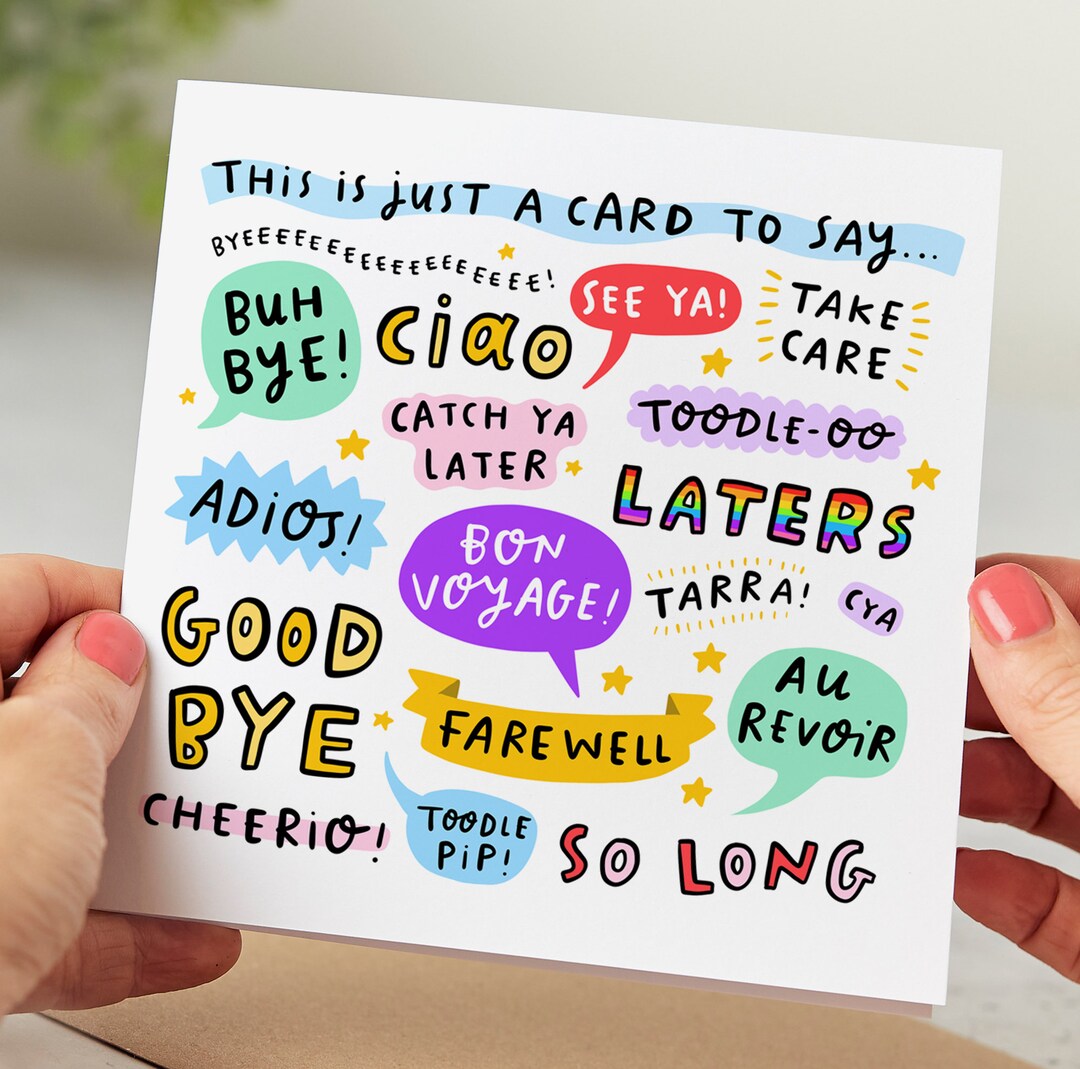 THiS iS jUST A CARD TO SAY...
BYEEEEEEEEEEEEEEEEEEE!
BUH
BYE!
Ciao
SEE YA!
TAKE
CARE
CATCH YA
LATER
TOODLE-OO
ADiOS!
LATERS
BON
VOYAGE!
TARRA!
CYA
GOOD
BYE
FAREWELL
AU
REVOiR
CHEERiO!
TOODLE
PiP!
SO LONG